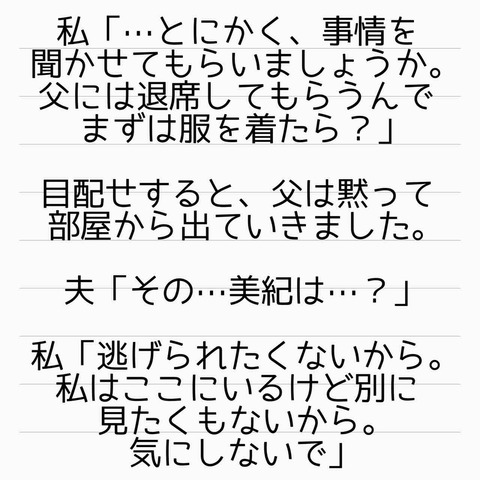 私「…とにかく、事情を
聞かせてもらいましょうか。
父には退席してもらうんで
まずは服を着たら？」
目配せすると、父は黙って
部屋から出ていきました。
夫「その…美紀は…？」
私「逃げられたくないから。
私はここにいるけど別に
見たくもないから。
気にしないで」